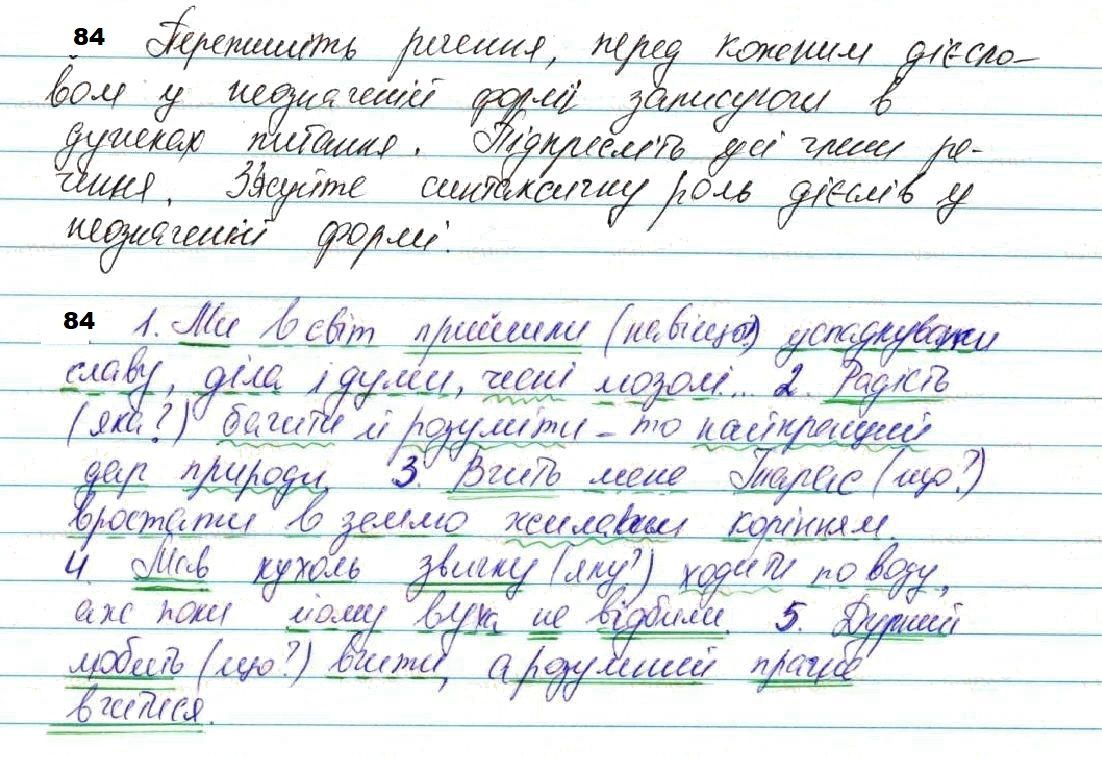 84 Перепишіть речення, перед кожним дієсло-
вом у неозначеній формі записуючи в
дужках питання. Підкресліть усі члени ре-
чення. З'ясуйте синтаксичну роль дієслів у
неозначеній формі.
84 1. Ми в світ прийшли (навіщо?) успадкувати
славу, діла і думи, чесні мозолі... 2. Радість
(яка?) бачити й розуміти – то найкращий
дар природи. 3. Вчить мене Тарас (що?)
вростати в землю жилавим корінням.
4 Мав кухоль звичку (яку?) ходити по воду,
аж поки йому вуха не відбили. 5. Дурний
любить (що?) вчити, а розумний прагне
вчитися.